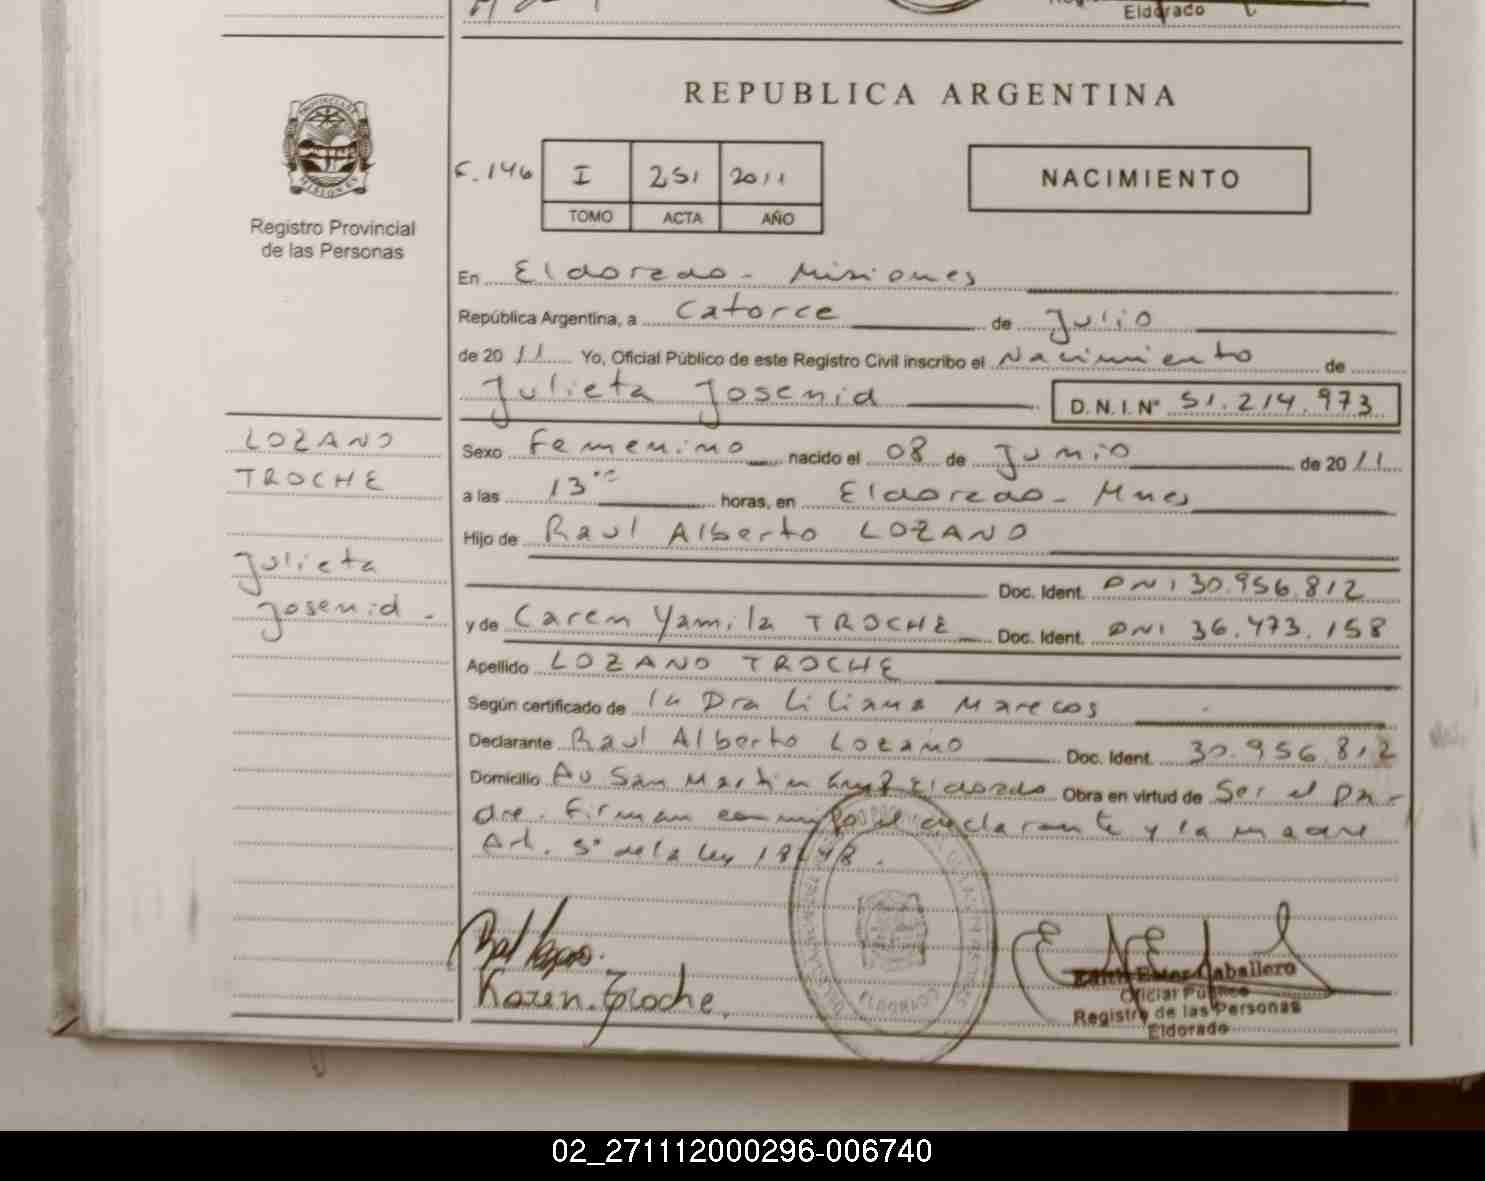 Eldorado
REPUBLICA ARGENTINA
F. 146
I 251 2011
TOMO ACTA AÑO
NACIMIENTO
PROVINCIA DE MISIONES
Registro Provincial
de las Personas
En Eldorado - Misiones
República Argentina, a Catorce de Julio
de 2011 Yo, Oficial Público de este Registro Civil inscribo el Nacimiento de
Julieta Josenid D.N.I.Nº 51.214.973
LOZANO
TROCHE
Julieta
Josenid -
Sexo Femenino nacido el 08 de Junio de 2011
a las 13 horas, en Eldorado - Mnes
Hijo de Raul Alberto LOZANO
Doc. Ident. DNI 30.956.812
y de Caren Yamila TROCHE Doc. Ident. DNI 36.473.158
Apellido LOZANO TROCHE
Según certificado de la Dra Liliana Marecos
Declarante Raul Alberto Lozano Doc. Ident. 30.956.812
Domicilio Av San Martin Eldorado Obra en virtud de Ser el Pa-
dre. Firman conmigo el declarante y la madre
Art. 5º de la ley 18248.
Karen Troche.
ELDORADO
Edith Ester Caballero
Oficial Público
Registro de las Personas
Eldorado
02_271112000296-006740